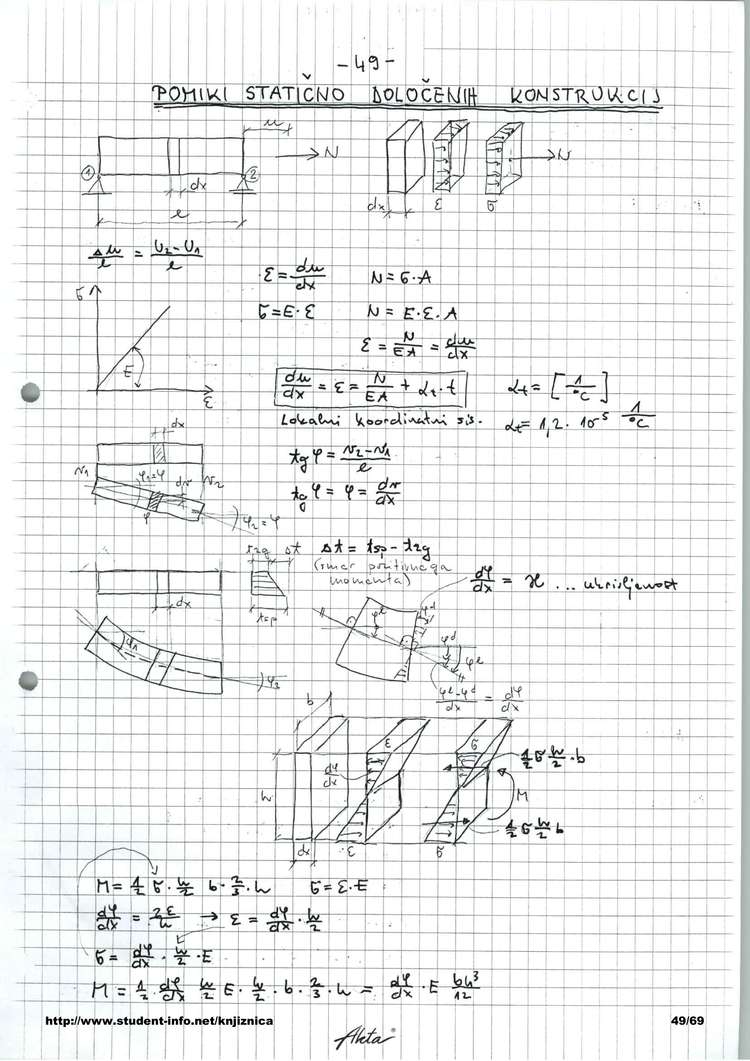 - 49 -
POMIKI STATIČNO DOLOČENIH KONSTRUKCIJ
u
① ② → N → N
dx dx ε σ
l
Δu/l = (U₂-U₁)/l
ε = du/dx N = σ·A
σ
σ = E·ε N = E·ε·A
ε = N/EA = du/dx
E
ε
du/dx = ε = N/EA + αₜ·t αₜ = [1/°C]
Lokalni koordinatni sis. αₜ = 1,2·10⁻⁵ 1/°C
dx
tg φ = (v₂-v₁)/l
v₁ φ₁=φ dv v₂
tg φ = φ = dv/dx
φ φ₂=φ
tzg Δt Δt = tsp - tzg
(smer pozitivnega momenta)
dφ/dx = ϰ ... ukrivljenost
dx tsp
φ₁ φ₂
φˡ φᵈ
φᵈ φˡ
(φˡ-φᵈ)/dx = dφ/dx
b
ε σ
dφ/dx
½ σ h/2 · b
h M
½ σ h/2 b
dx ε σ
M = ½ σ · h/2 b · 2/3 · h σ = ε·E
dφ/dx = 2ε/h → ε = dφ/dx · h/2
σ = dφ/dx · h/2 · E
M = ½ · dφ/dx h/2 E · h/2 · b · 2/3 · h = dφ/dx · E bh³/12
http://www.student-info.net/knjiznica 49/69
Akta